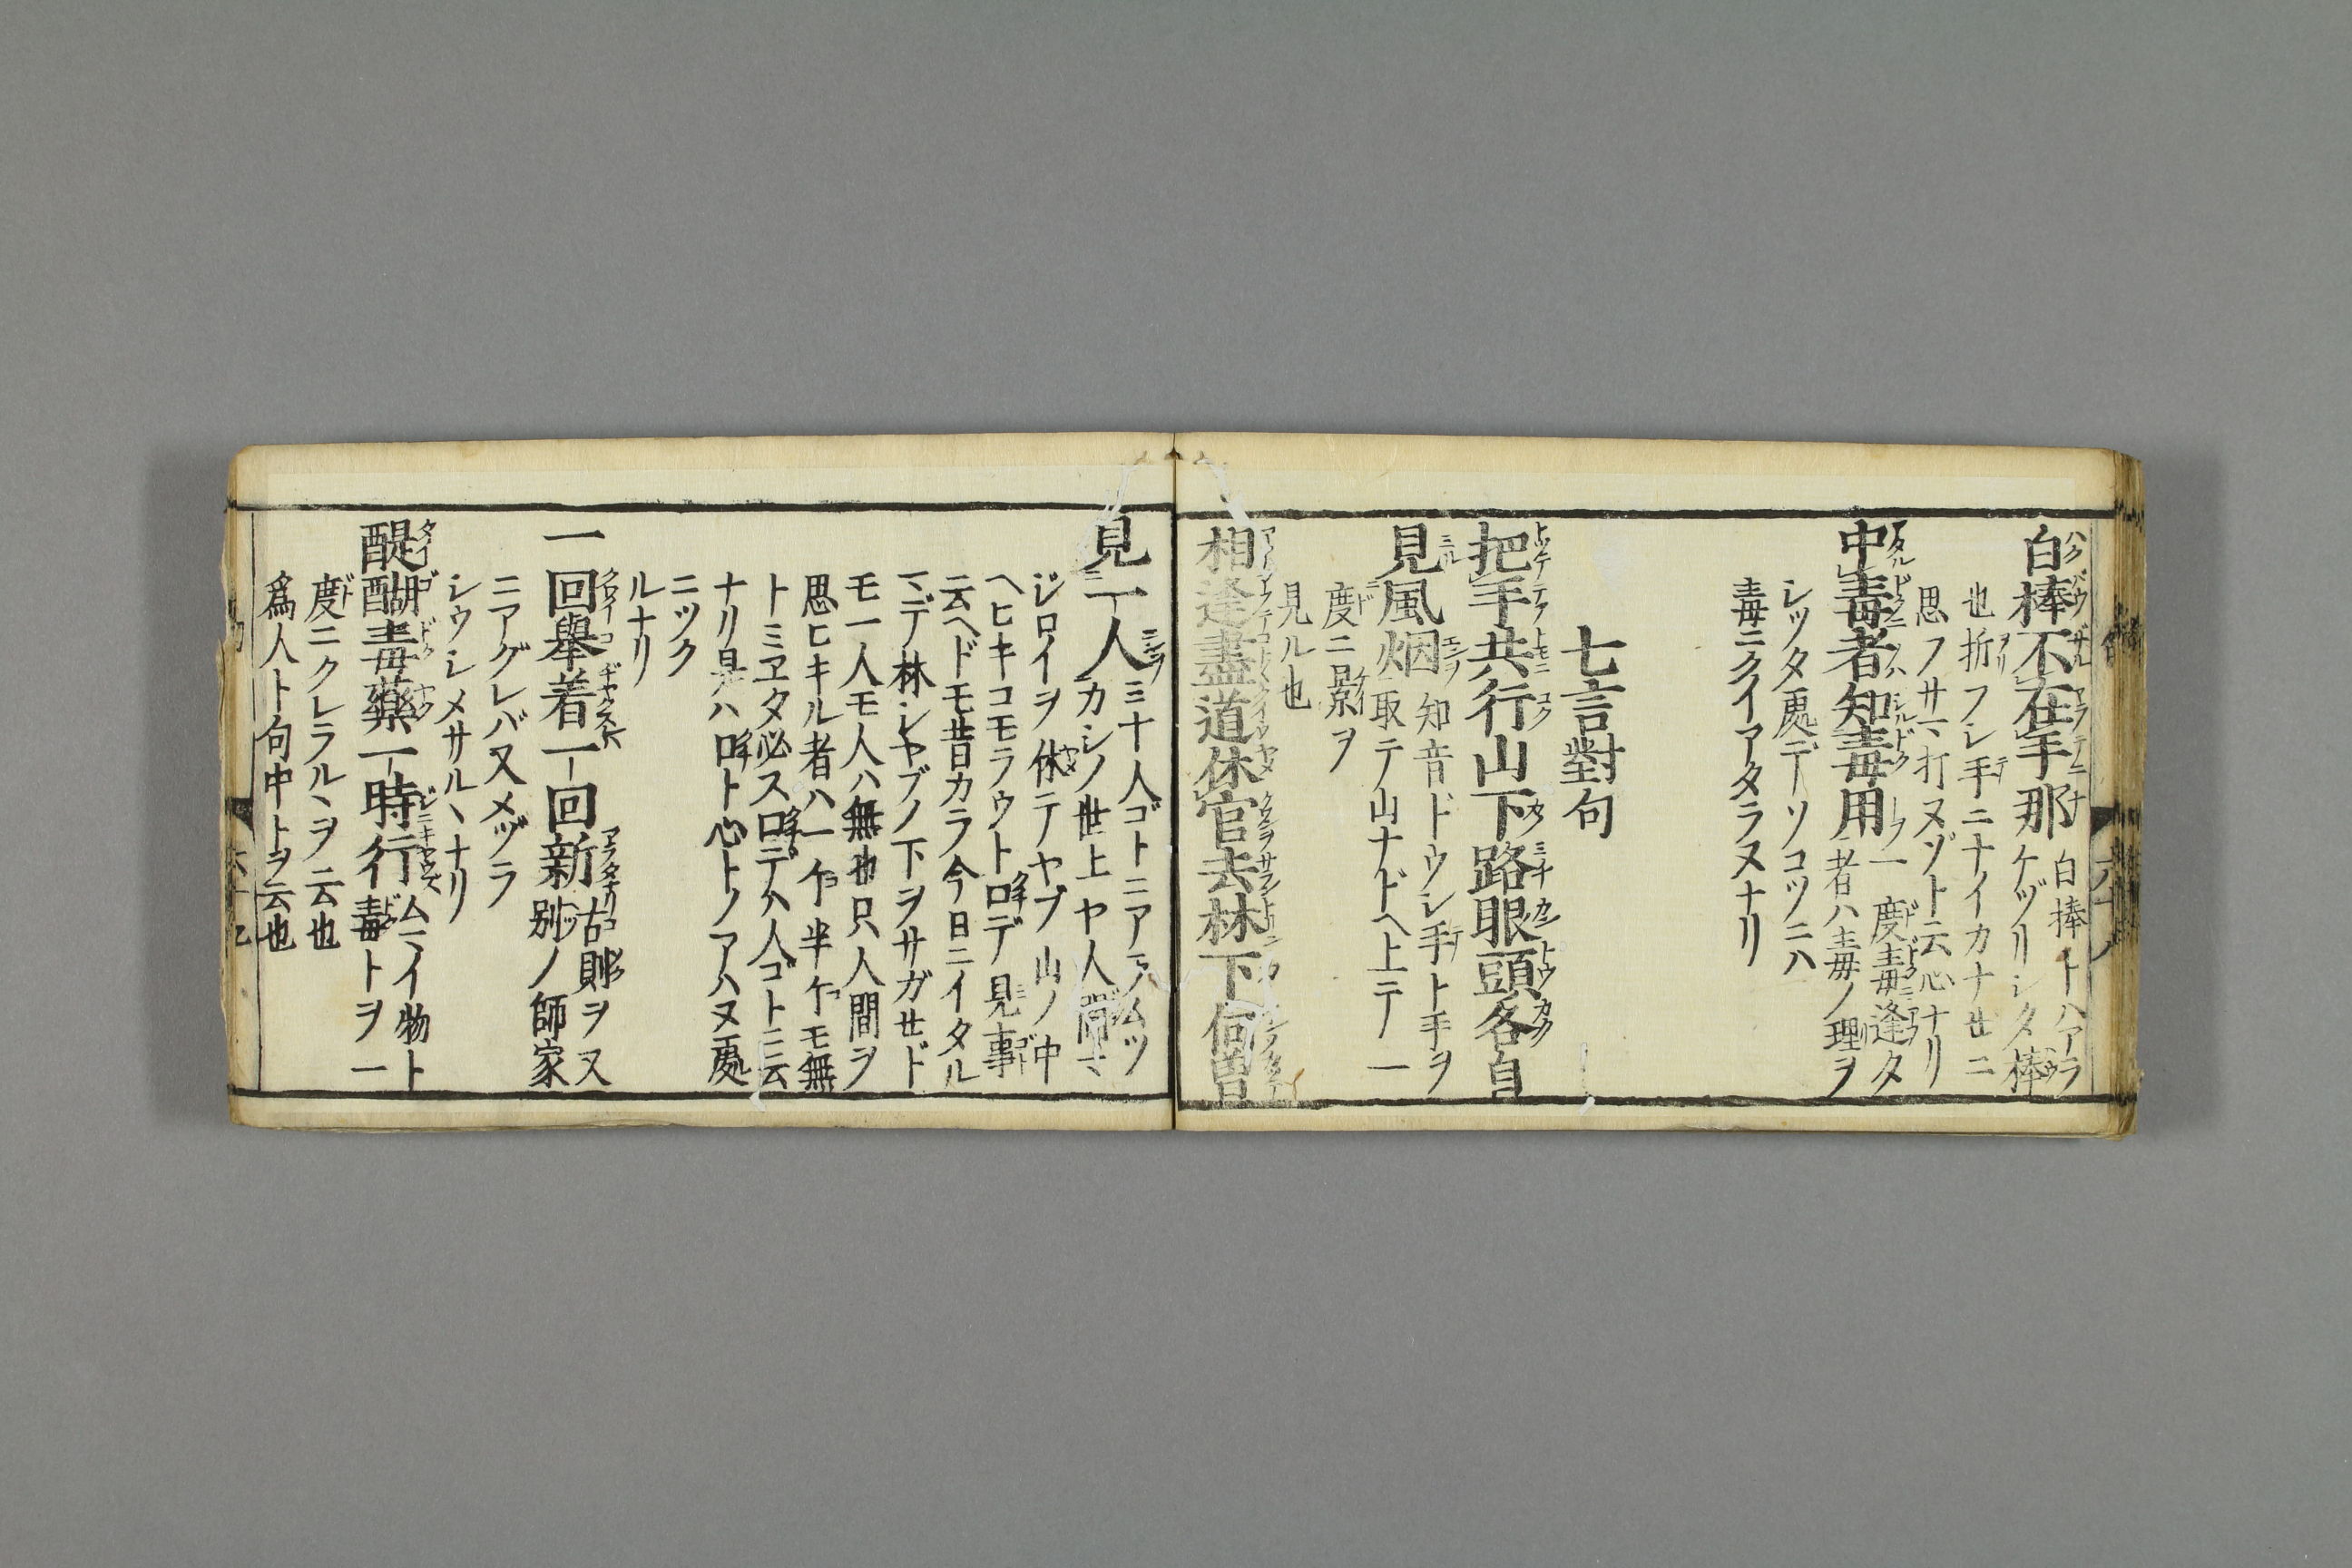 白棒不在手那 白棒トハアラ
ケヅリシタ棒
也折フシ手ニナイカナせニ
思フサマ打ヌゾト云心ナリ
中毒者知毒用 一度毒逢タ
者ハ毒ノ理ヲ
シツタ処デソコツニハ
毒ニクイアタラヌナリ
七言對句
把手共行山下路眼頭各自
見風烟 知音ドウシ手ト手ヲ
取テ山ナドヘ上テ一
度ニ影ヲ
見ル也
相逢盡道休官去林下何曽
見一人 ミナ人ゴトニアラムツ
カシノ世上ヤ人間マ
ジロイヲ休テヤブ山ノ中
ヘヒキコモラウト口デ見事
云ヘドモ昔カラ今日ニイタル
マデ林シヤブノ下ヲサガせド
モ一人モ人ハ無也只人間ヲ
思ヒキル者ハ一ケ半ケモ無
トミヱタ必ス口デハ人ゴトニ云
ナリ是ハ口ト心トノアハヌ処
ニツク
ルナリ
一回舉着一回新 古則ヲヌ
別ノ師家
ニアゲレバ又メヅラ
シウシメサルヽナリ
醍醐毒藥一時行 ムマイ物ト
毒トヲ一
度ニクレラルヽヲ云也
爲人ト句中トヲ云也
六十九